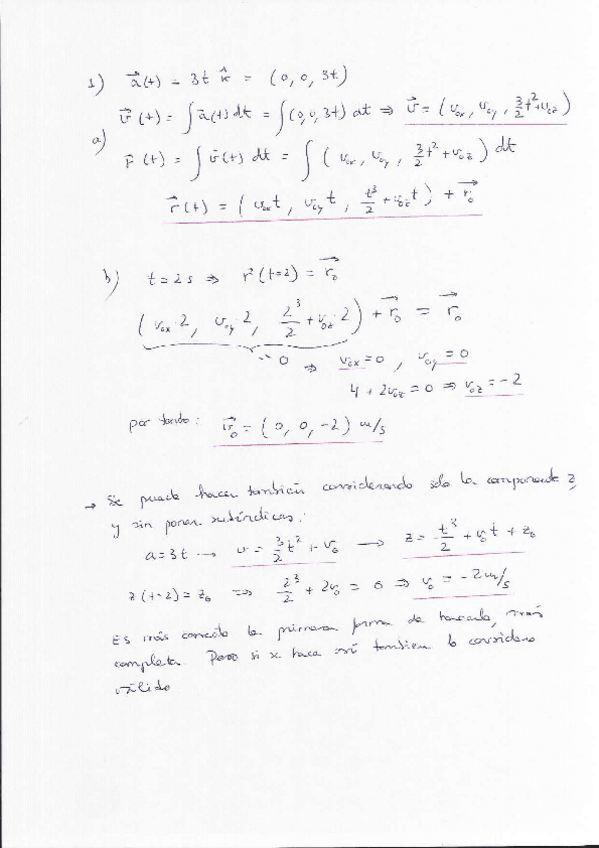 1) a⃗(t) = 3t k̂ = (0, 0, 3t)
a) v⃗(t) = ∫ a⃗(t) dt = ∫ (0, 0, 3t) dt ⇒ v⃗ = (v₀ₓ, v₀y, 3/2 t² + v₀z)
r⃗(t) = ∫ v⃗(t) dt = ∫ (v₀ₓ, v₀y, 3/2 t² + v₀z) dt
r⃗(t) = (v₀ₓt, v₀yt, t³/2 + v₀zt) + r⃗₀
b) t = 2 s ⇒ r⃗(t=2) = r⃗₀
(v₀ₓ·2, v₀y·2, 2³/2 + v₀z·2) + r⃗₀ = r⃗₀
0 ⇒ v₀ₓ = 0, v₀y = 0
4 + 2v₀z = 0 ⇒ v₀z = -2
por tanto: v⃗₀ = (0, 0, -2) m/s
→ Se puede hacer también considerando solo la componente z,
y sin poner subíndices:
a = 3t → v = 3/2 t² + v₀ → z = t³/2 + v₀t + z₀
z(t=2) = z₀ ⇒ 2³/2 + 2v₀ = 0 ⇒ v₀ = -2 m/s
Es más correcto la primera forma de hacerlo, más
completa. Pero si se hace así también lo considero
válido